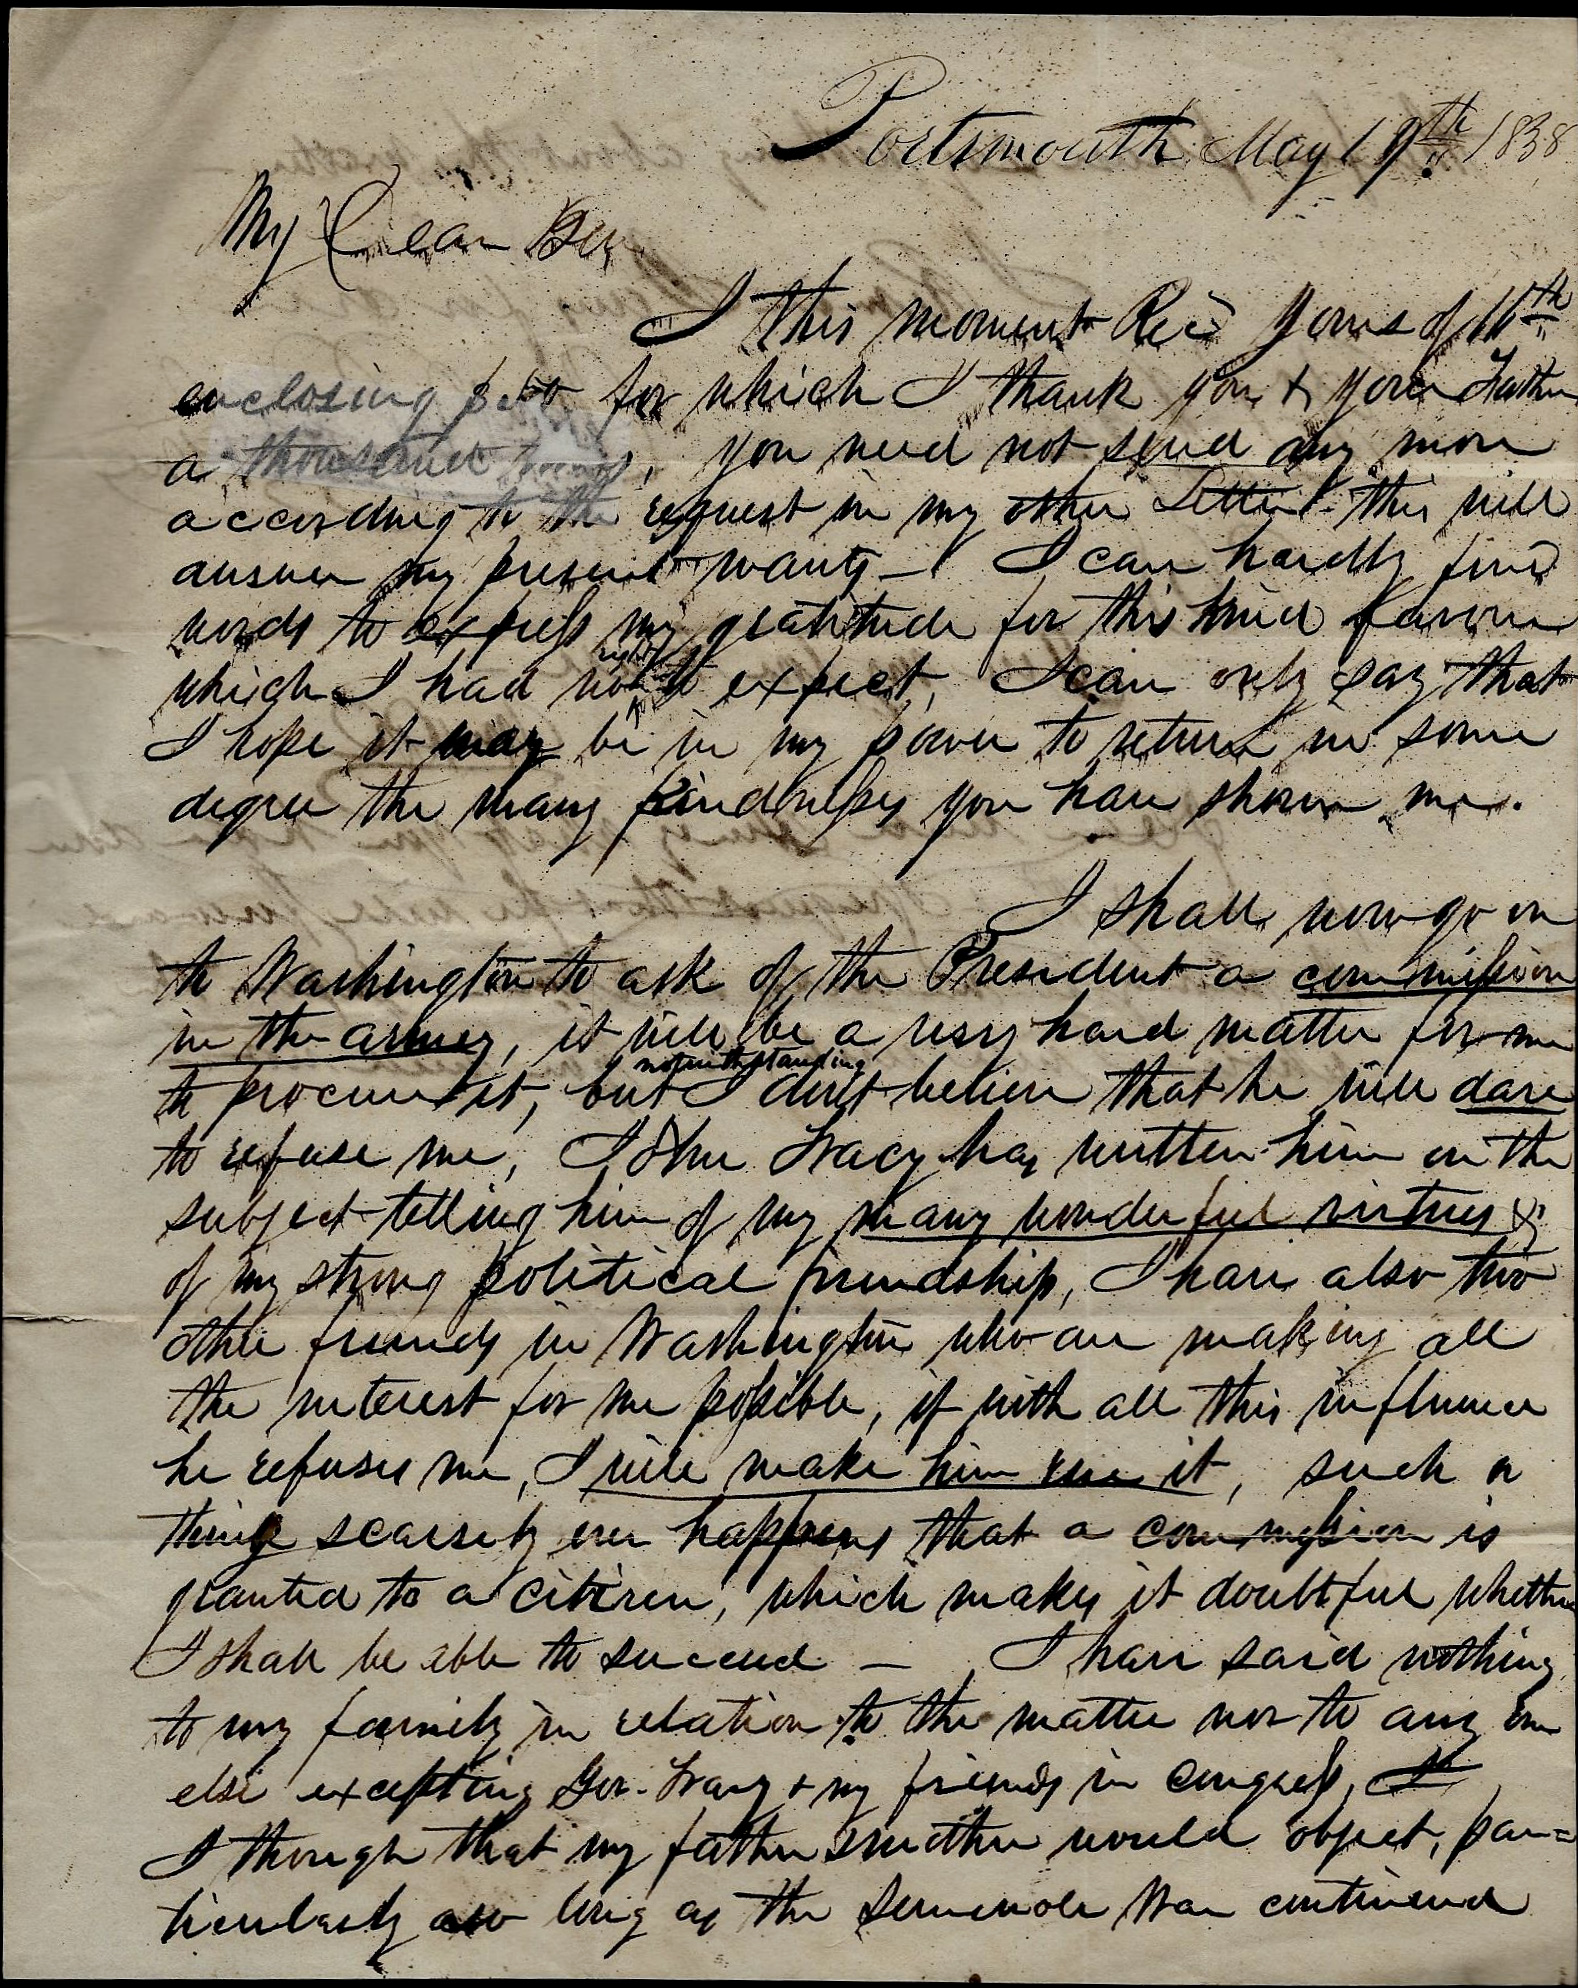 Portsmouth May 19th 1838
My Dear Ben
I this moment Rec'd yours of 16th
enclosing $ for which I thank you & your Father
a thousand times, you need not send any more
according to the request in my other Letter this will
answer my present wants — I can hardly find
words to express my gratitude for this kind favour
right
which I had no to expect, I can only say that
I hope it may be in my power to return in some
degree the many kindnesses you have shown me.
I shall now go on
to Washington to ask of the President a commission
in the army, it will be a very hard matter for me
notwithstanding
to procure it, but I don't believe that he will dare
to refuse me, John Tracy has written him on the
subject telling him of my many wonderful virtues &
of my strong political friendship, I have also two
other friends in Washington who are making all
the interest for me possible, if with all this influence
he refuses me, I will make him rue it, such a
thing scarsely ever happens that a commission is
granted to a citizen, which makes it doubtful whether
I shall be able to succeed — I have said nothing
to my family in relation to the matter nor to any one
else excepting Gov. Tracy & my friends in congress,
I though that my father & mother would object, par=
ticularly as long as the Seminole War continued